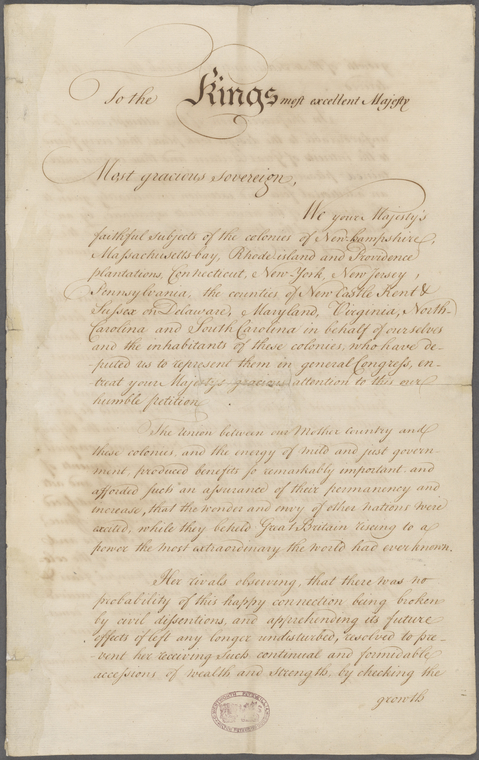 To the Kings most excellent Majesty
Most gracious Sovereign,
We your Majesty's
faithful subjects of the colonies of New-hampshire,
Massachusetts-bay, Rhode-island and Providence
plantations, Connecticut, New-York, New Jersey,
Pennsylvania, the counties of New Castle Kent &
Sussex on Delaware, Maryland, Virginia, North-
Carolina and South Carolina in behalf of ourselves
and the inhabitants of these colonies, who have de-
puted us to represent them in general Congress, en-
treat your Majesty's gracious attention to this our
humble petition.
The Union between our Mother Country and
these colonies, and the energy of mild and just govern-
ment, produced benefits so remarkably important and
afforded such an assurance of their permanency and
increase, that the wonder and envy of other nations were
excited, while they beheld Great Britain riseing to a
power the most extraordinary the world had ever known.
Her rivals observing, that there was no
probability of this happy connection being broken
by civil dissentions, and apprehending its future
effects if left any longer undisturbed, resolved to pre-
-vent her receiving such continual and formidable
accessions of wealth and strength, by checking the
growth